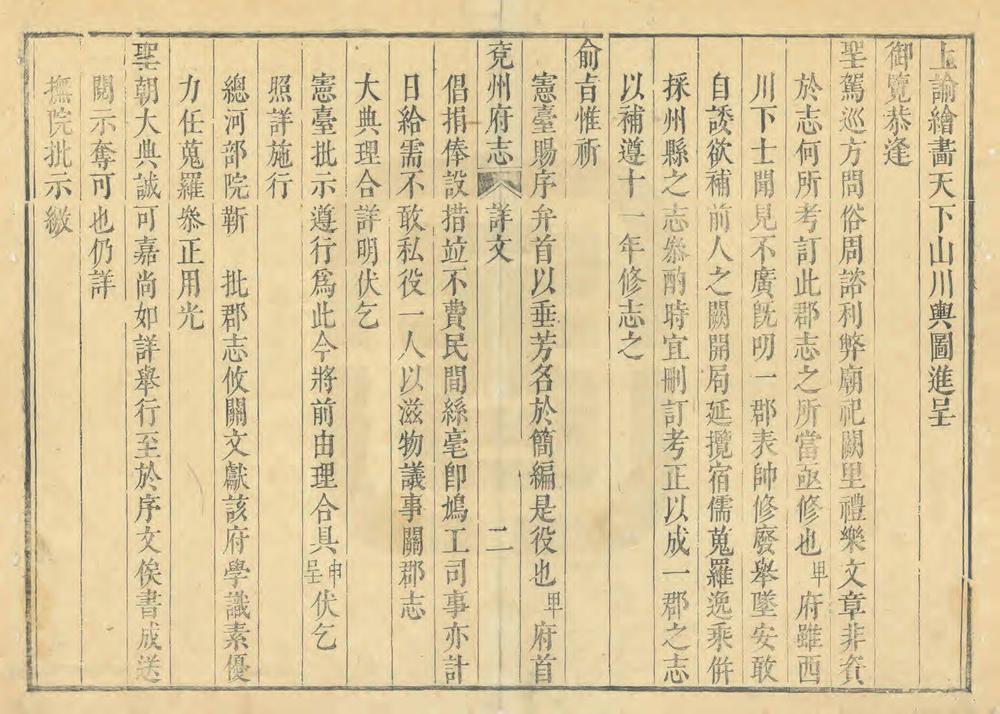 上諭繪畫天下山川輿圖進呈
御覽恭逢
聖駕巡方問俗周諮利弊廟祀闕里禮樂文章非資
於志何所考訂此郡志之所當亟修也卑府雖西
川下士聞見不廣旣叨一郡表帥修廢舉墜安敢
自諉欲補前人之闕開局延攬宿儒蒐羅逸乘倂
採州縣之志叅酌時宜刪訂考正以成一郡之志
以補遵十一年修志之
俞旨惟祈
憲臺賜序弁首以垂芳名於簡編是役也卑府首
兖州府志 詳文 二
倡捐俸設措竝不費民間絲毫卽鳩工司事亦計
日給需不敢私役一人以滋物議事關郡志
大典理合詳明伏乞
憲臺批示遵行爲此今將前由理合具申呈伏乞
照詳施行
總河部院靳 批郡志攸關文獻該府學識素優
力任蒐羅叅正用光
聖朝大典誠可嘉尚如詳舉行至於序文俟書成送
閱示奪可也仍詳
撫院批示繳